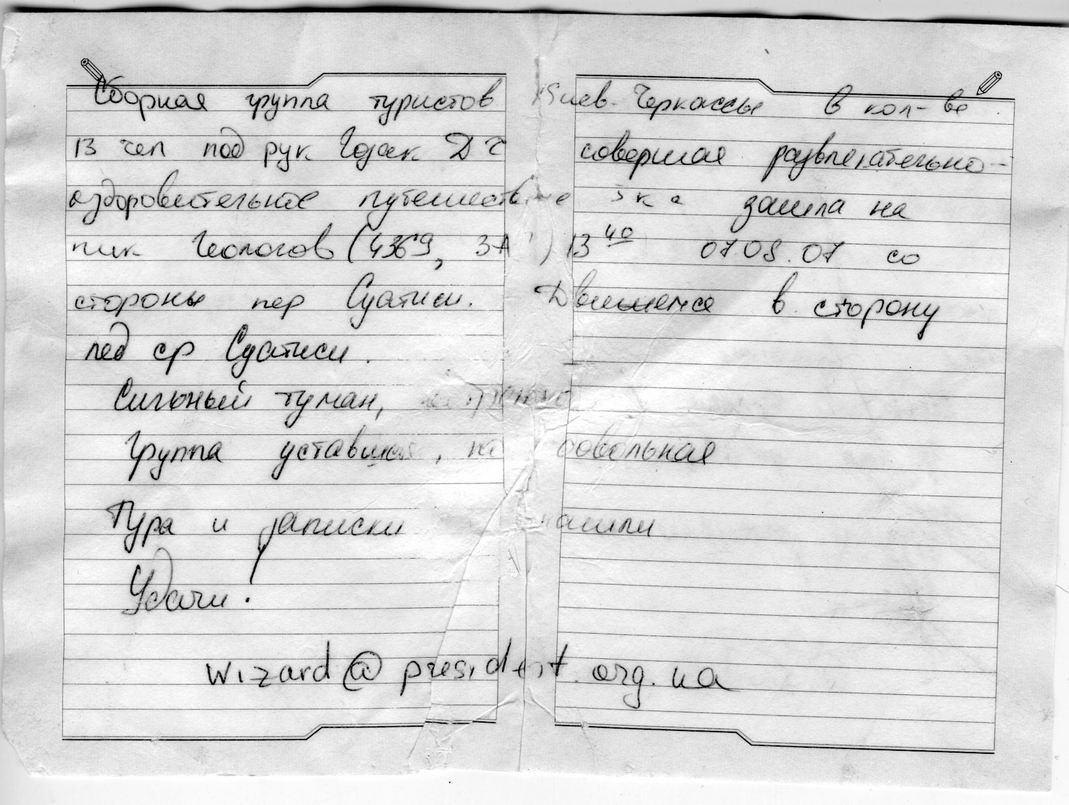 Сборная группа туристов Киев-Черкассы в кол-ве
13 чел под рук Гордак Д С совершая развлекательно-
оздоровительное путешествие зашла на
пик Геологов (4369, 3А) 13⁴⁰ 07.08.07 со
стороны пер Суатиси. Движемся в сторону
лед ср Суатиси.
Сильный туман,
Группа уставшая, но довольная
Тура и записки нашли
Удачи!
wizard@president.org.ua